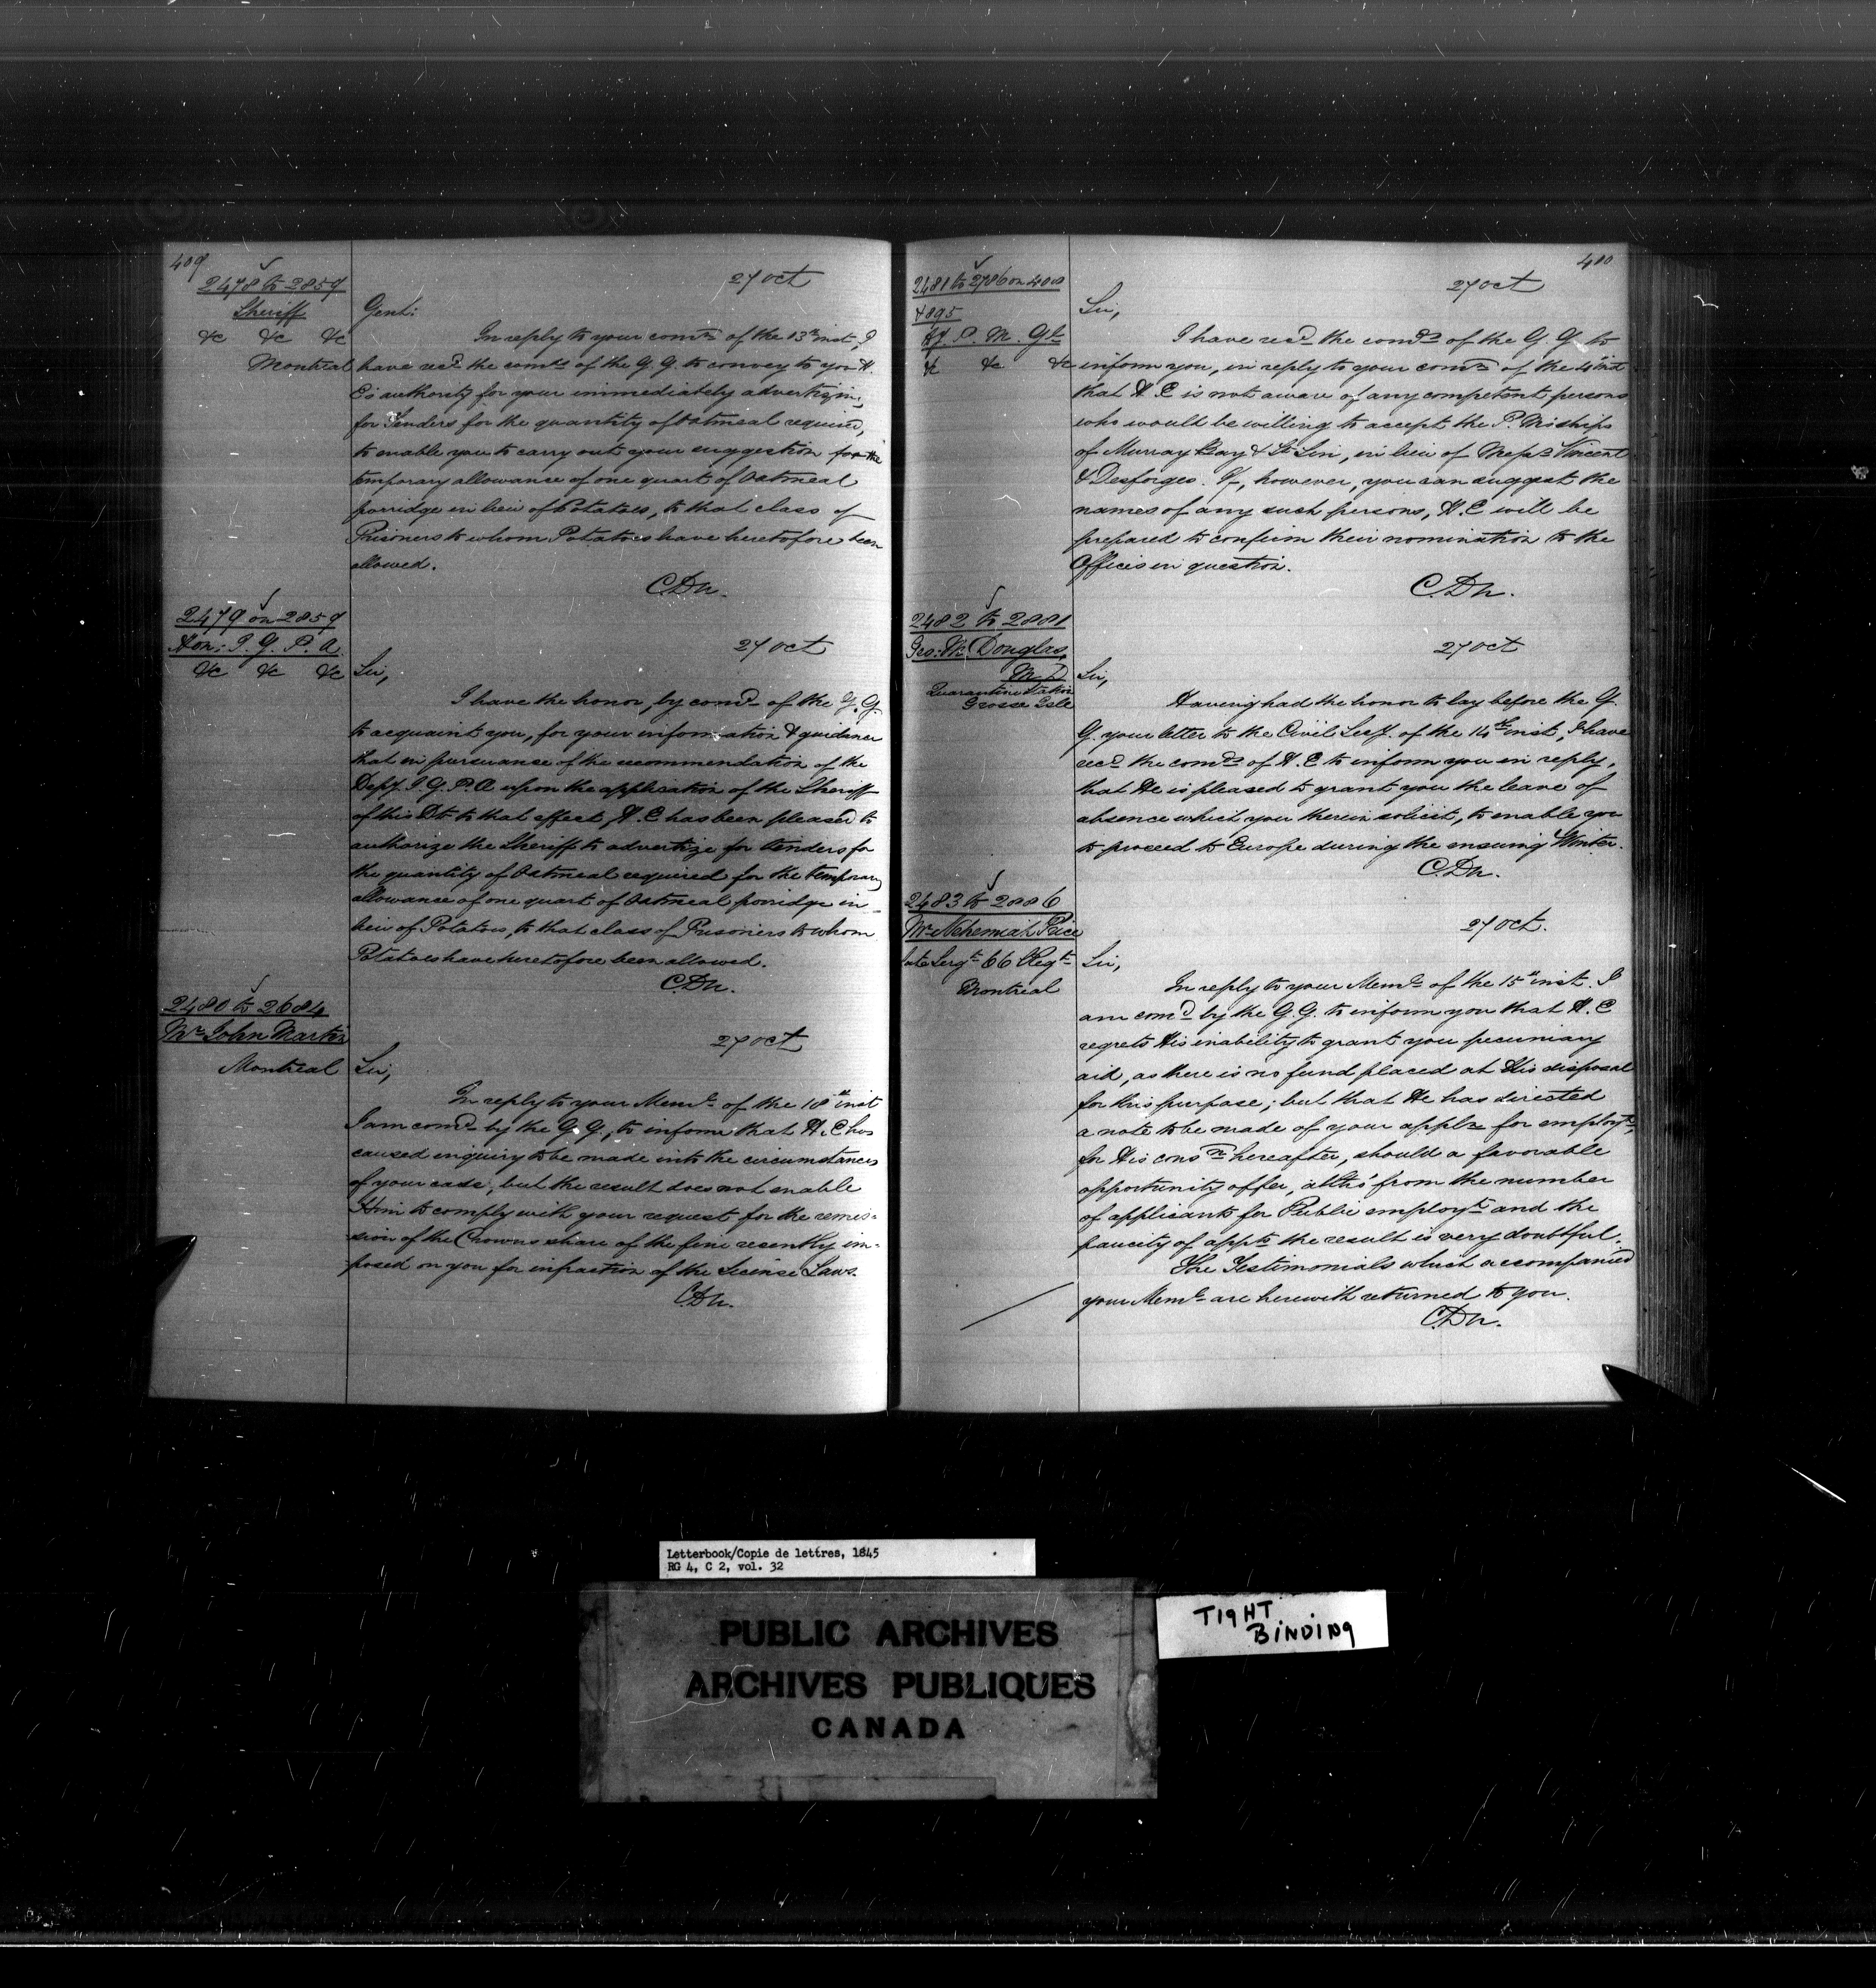 409
2478 to 2859
Sheriff
&c &c &c
Montreal
27 Oct
Gent:
In reply to your comn of the 13th inst, I
have recd the comds of the G. G. to convey to you H.
E's authority for your immediately advertizing
for Tenders for the quantity of Oatmeal required,
to enable you to carry out your suggestion for the
temporary allowance of one quart of Oatmeal
porridge in lieu of Potatoes, to that class of
Prisoners to whom Potatoes have heretofore been
allowed.
C.Dn.
2479 on 2859
Hon: I. G. P. A.
&c &c &c
27 Oct
Sir,
I have the honor, by comd of the G. G.
to acquaint you, for your information & guidance
that in pursuance of the recommendation of the
Depy. I. G. P. A upon the application of the Sheriff
of this Dt to that effect, H. E has been pleased to
authorize the Sheriff to advertize for tenders for
the quantity of Oatmeal required for the temporary
allowance of one quart of Oatmeal porridge in
lieu of Potatoes, to that class of Prisoners to whom
Potatoes have heretofore been allowed.
C.Dn.
2480 to 2684
Mr John Martin
Montreal
27 Oct
Sir,
In reply to your Meml of the 18th inst
I am comd by the G. G., to inform that H. E has
caused enquiry to be made into the circumstances
of your case; but the result does not enable
Him to comply with your request for the remis=
sion of the Crowns share of the fine recently im=
posed on you for infraction of the License Laws.
C.Dn.
410
2481 to 2786 on 400
&895
Dy. P. M. Gl
&c &c &c
27 Oct
Sir,
I have recd the comds of the G. G. to
inform you, in reply to your comn of the 4th inst
that H. E is not aware of any competent persons
who would be willing to accept the P. Mrships
of Murray Bay & St Lin, in lieu of Messrs Vincent
& Desforges. If, however, you can suggest the
names of any such persons, H. E will be
prepared to confirm their nomination to the
Offices in question.
C.Dn.
2482 to 2881
Geo: M. Douglas,
M D
Quarantine Station
Grosse Isle
27 Oct
Sir,
Having had the honor to lay before the G.
G. your letter to the Civil Secy. of the 14th inst, I have
recd the comds of H. E to inform you in reply,
that He is pleased to grant you the leave of
absence which you therein solicit, to enable you
to proceed to Europe during the ensuing Winter.
C.Dn.
2483 to 2886
Mr Nehemiah Price
late Sergt 66 Regt
Montreal
27 Oct.
Sir,
In reply to your Meml of the 15th inst. I
am comd by the G. G. to inform you that H. E
regrets His inability to grant you pecuniary
aid, as there is no fund placed at His disposal
for this purpose; but that He has directed
a note to be made of your appln for employt,
for His consn hereafter, should a favorable
opportunity offer, altho' from the number
of applicants for Public employt and the
paucity of appts the result is very doubtful.
The Testimonials which accompanied
your Meml are herewith returned to you.
C.Dn.
Letterbook/Copie de lettres, 1845
RG 4, C 2, vol. 32
PUBLIC ARCHIVES
ARCHIVES PUBLIQUES
CANADA
TIGHT
BINDING